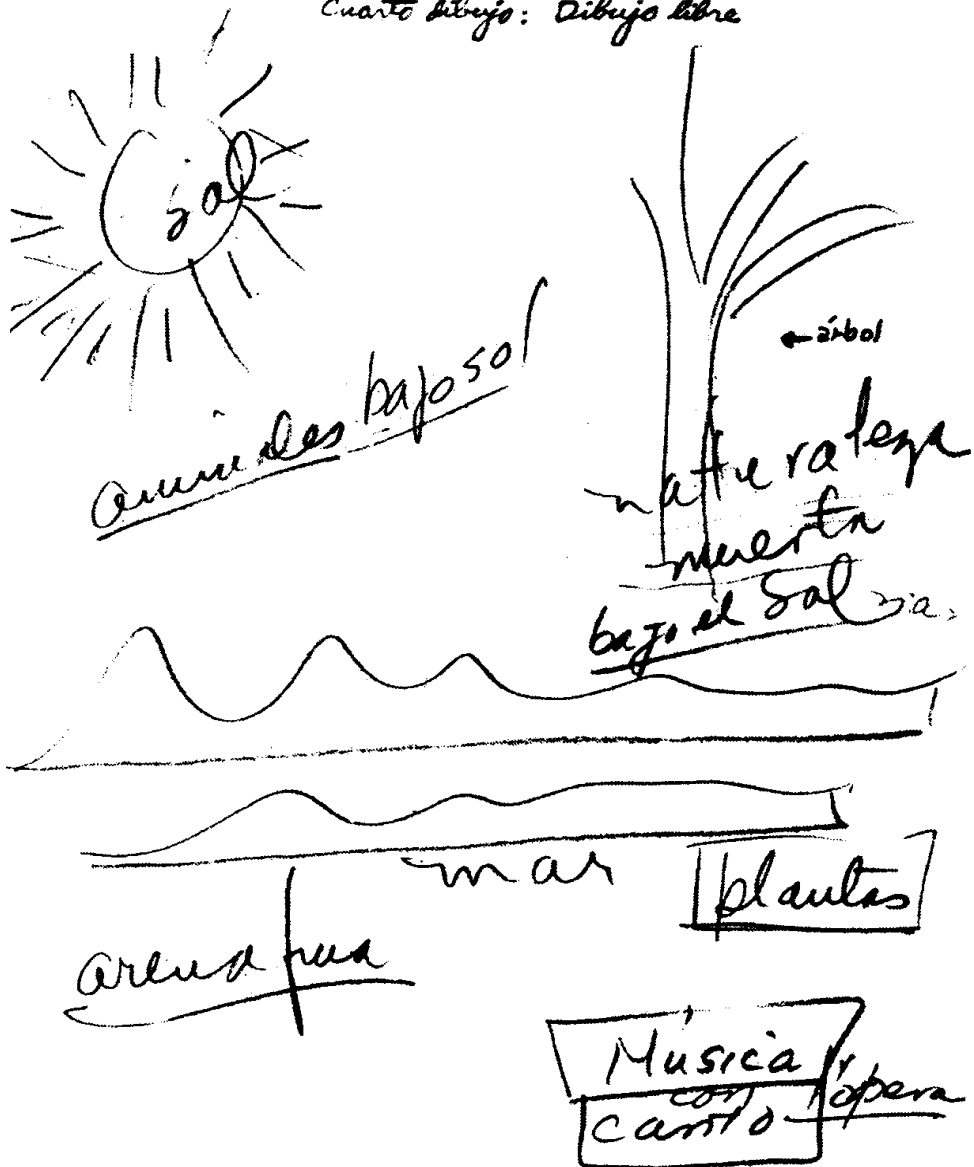 Cuarto dibujo: Dibujo libre
sol
← árbol
animales bajo sol
naturaleza
muerta
bajo el Sol
mar
plantas
arena
Música
con
canto
ópera